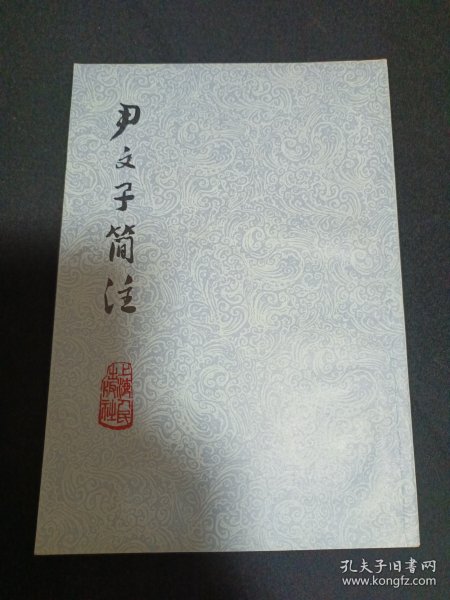 尹文子简注
上海人民
出版社
孔夫子旧书网
www.kongfz.com